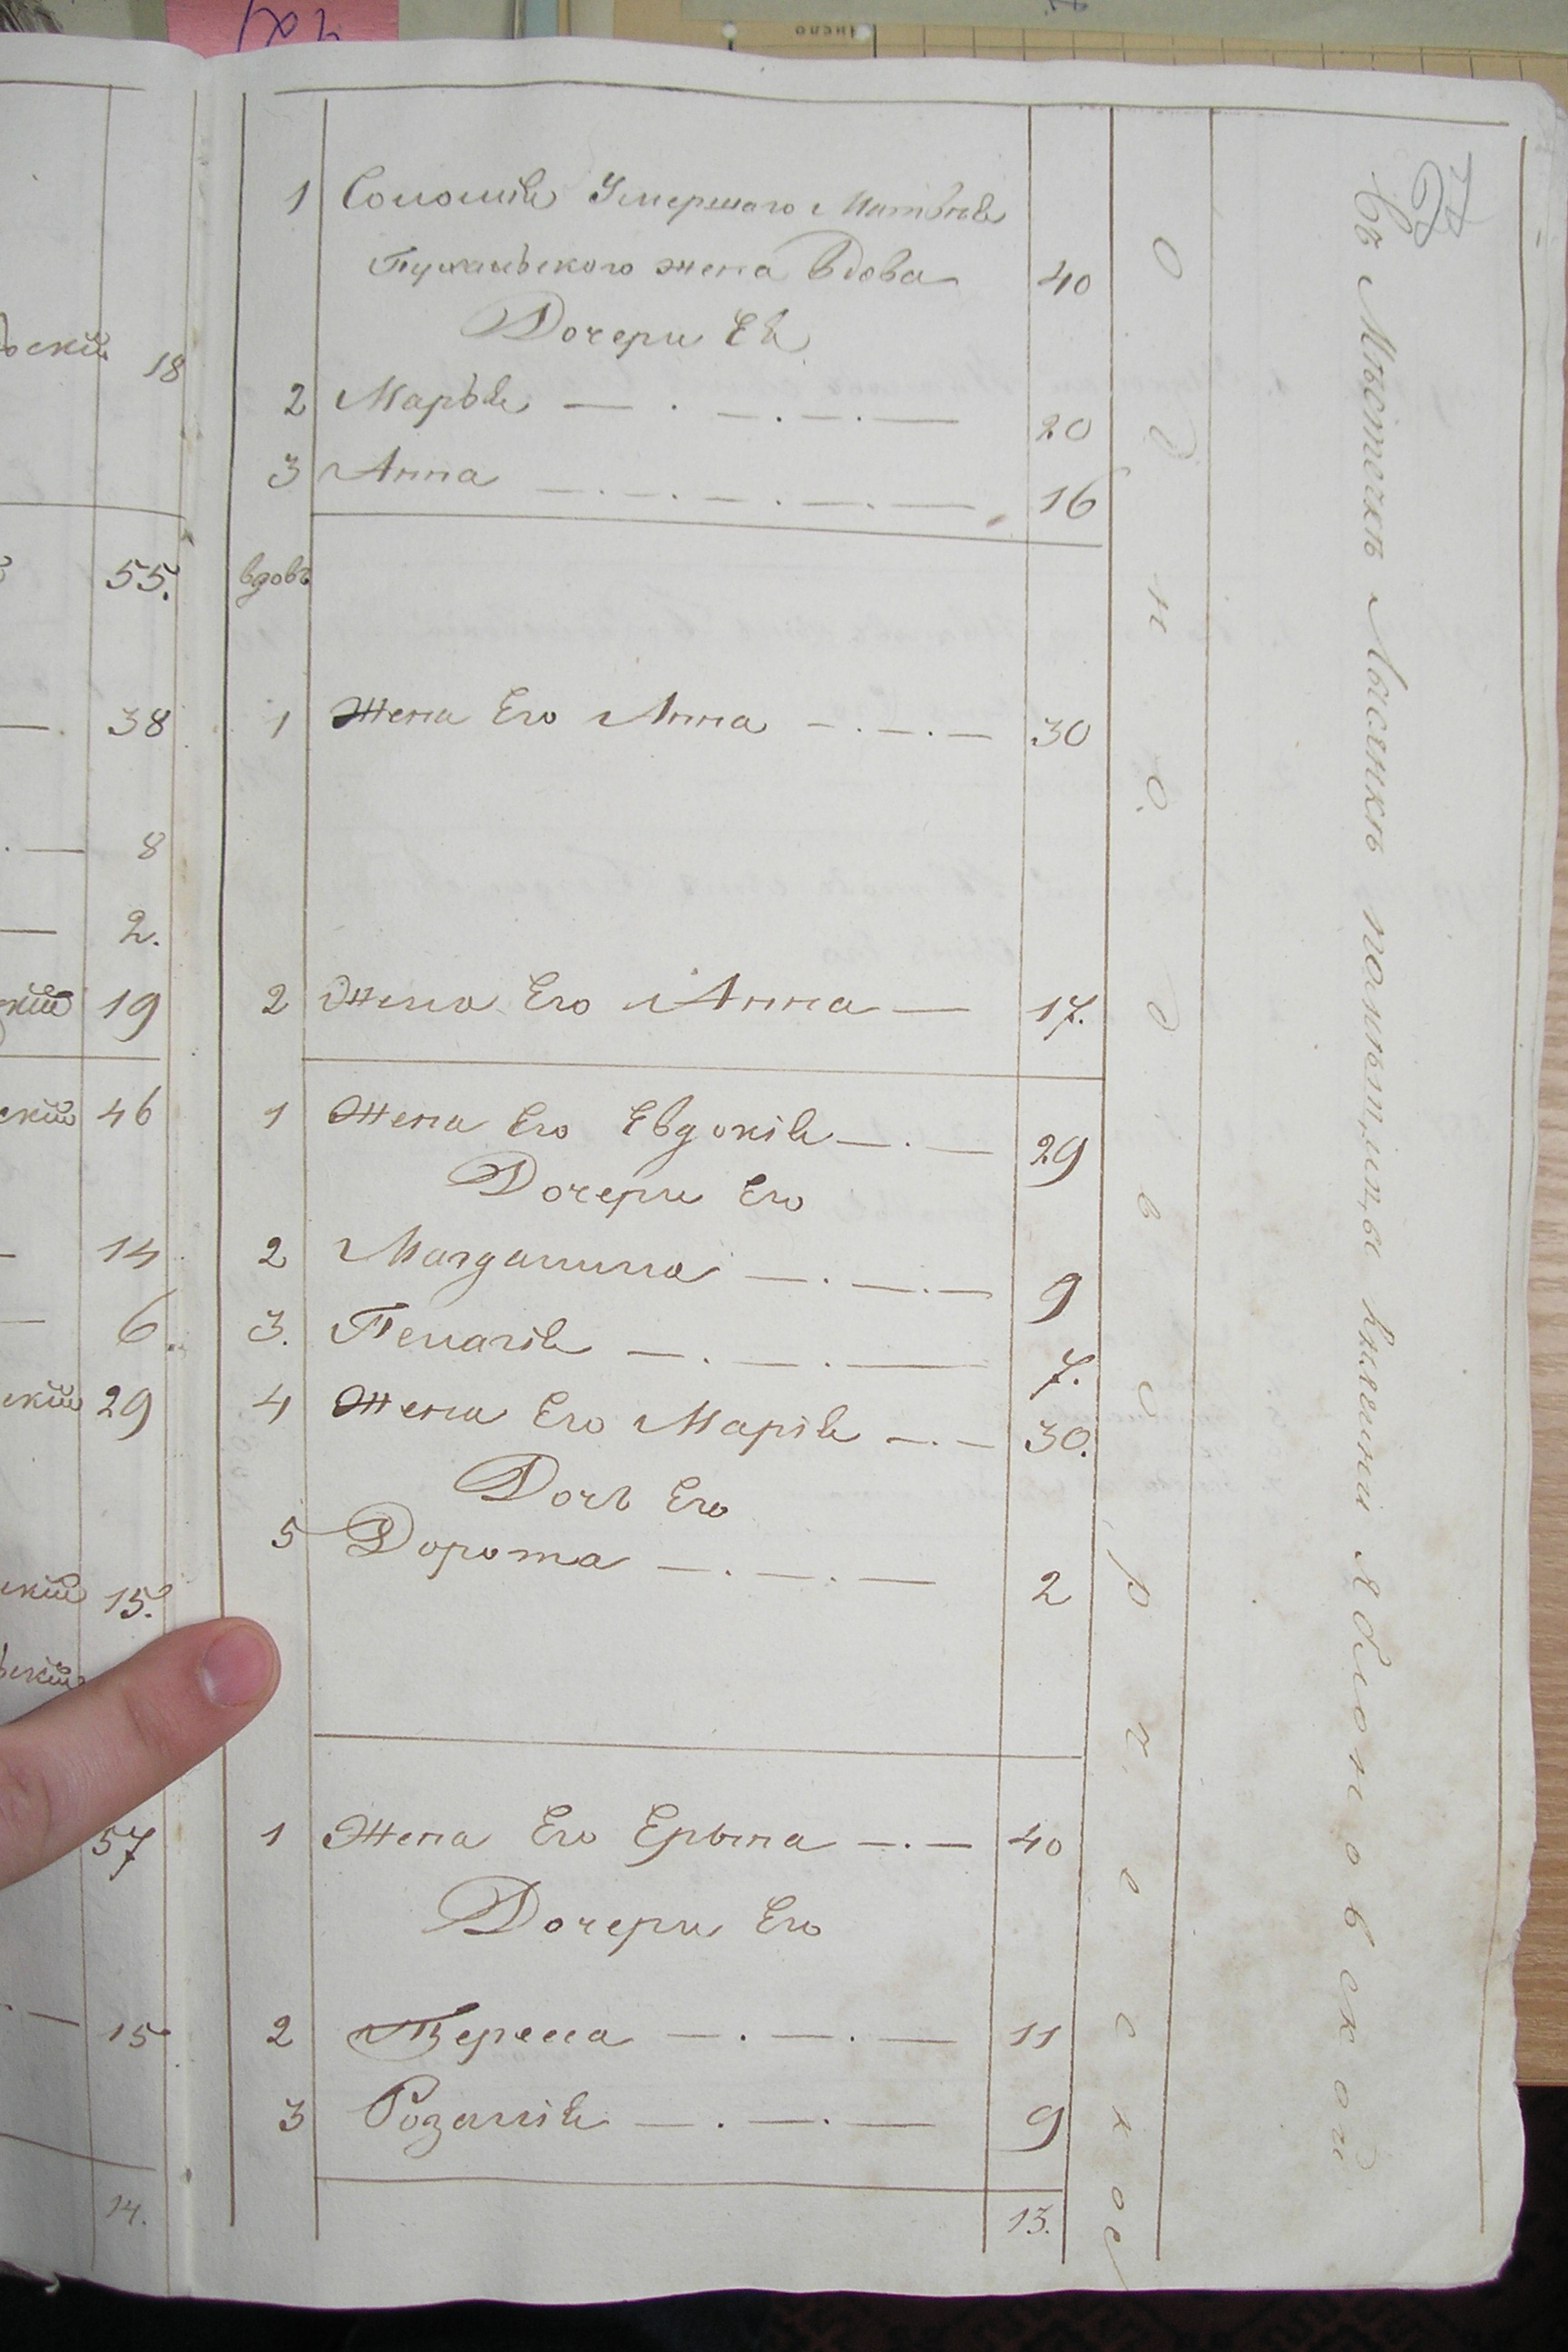 скій 18
55.
38
8
2.
скій 19
скій 46
14
6.
скій 29
скій 15.
ьскій
57
15
14.
1 Соломія Умершаго Матвѣя
Пухальского жена Вдова 40
Дочери Ея
2 Марья 20
3 Анна 16
вдовъ
1 Жена Его Анна 30
2 Жена Его Анна 17.
1 Жена Его Евдокія 29
Дочери Его
2 Магдалина 9
3. Пелагія 7.
4 Жена Его Марія 30.
Дочь Его
5 Дорота 2
1 Жена Его Ерына 40
Дочери Его
2 Тереса 11
3 Розалія 9
13.
Однодворческое
Въ Мѣстечкѣ Лысянкѣ помѣщицы Княгини Яблоновской